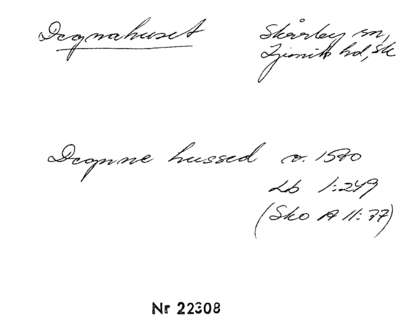 Degnahuset Skårby sn,
Ljunits hd, Sk
Degnne hussed o. 1570
Lb 1:249
(Sko A II:77)
Nr 22308